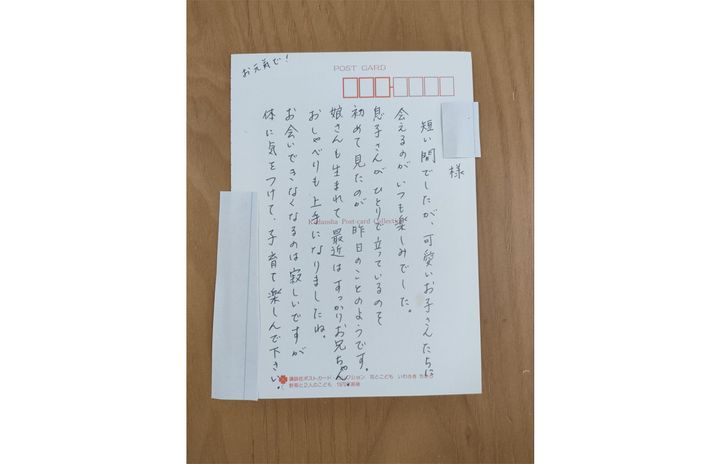 お元気で！
POST CARD
様
短い間でしたが、可愛いお子さんたちに
会えるのがいつも楽しみでした。
息子さんがひとりで立っているのを
初めて見たのが昨日のことのようです。
娘さんも生まれて最近はすっかりお兄ちゃん。
おしゃべりも上手になりましたね。
お会いできなくなるのは寂しいですが
体に気をつけて、子育て楽しんで下さい！
Kodansha Post-card Collection
講談社ポストカード・コレクション 花とこども いわさきちひろ
2人のこども